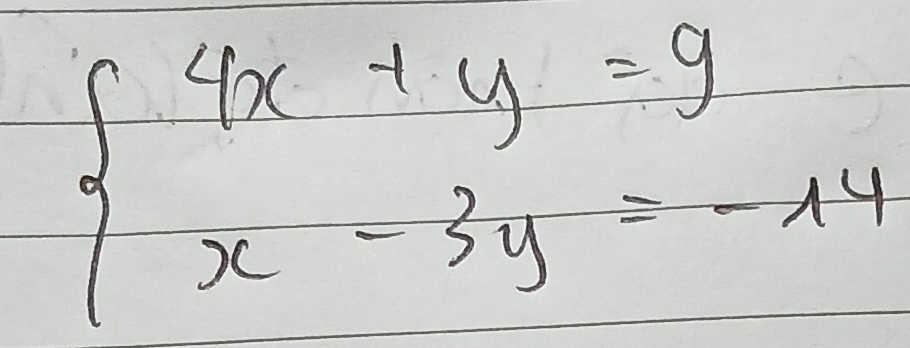 4x + y = 9
x - 3y = - 14